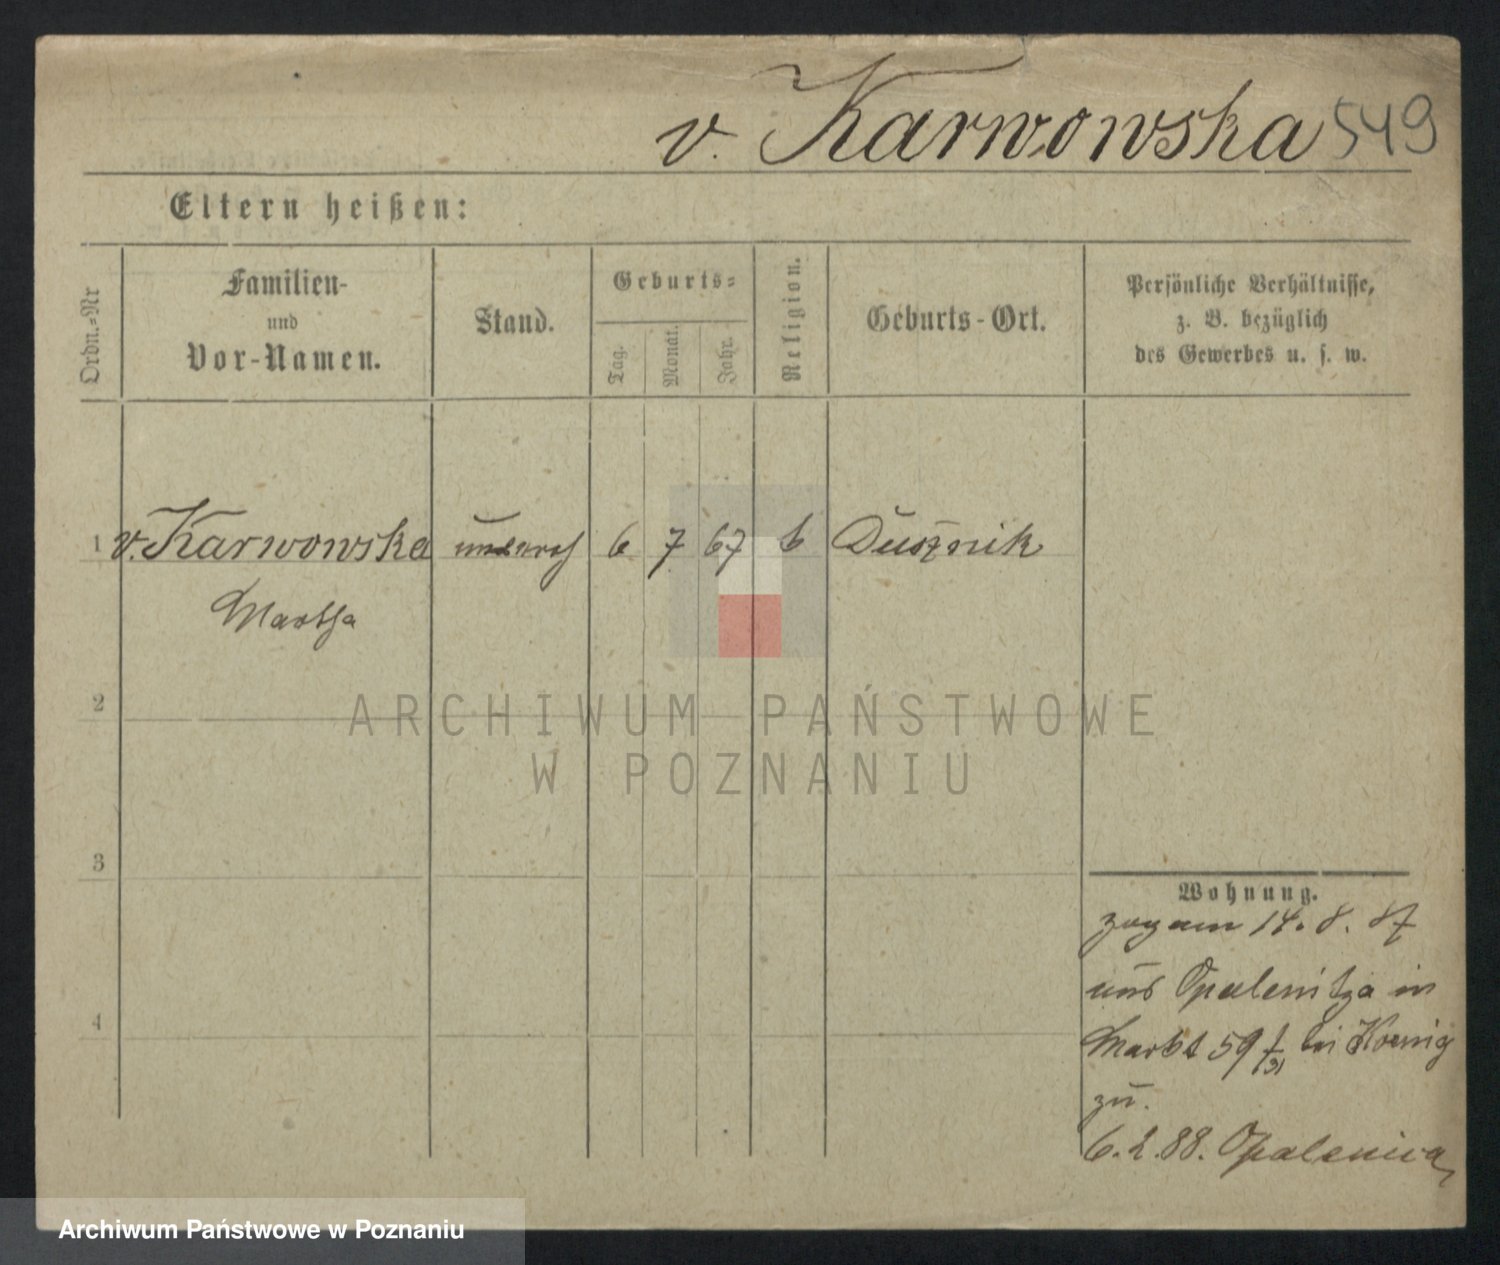 v. Karwowska 549
Eltern heißen:
Ordn.-Nr
Familien-
und
Vor-Namen.
Stand.
Geburts-
Tag.
Monat.
Jahr.
Religion.
Geburts-Ort.
Persönliche Verhältnisse,
z. B. bezüglich
des Gewerbes u. s. w.
1 v. Karwowska unverh 6 7 67 k Dusznik
Martha
2
3
4
Wohnung.
zog am 14. 8. 87
aus Opalenitza in
Markt 59 bei Koenig
zu.
6. 2. 88. Opalenica
ARCHIWUM PAŃSTWOWE
W POZNANIU
Archiwum Państwowe w Poznaniu